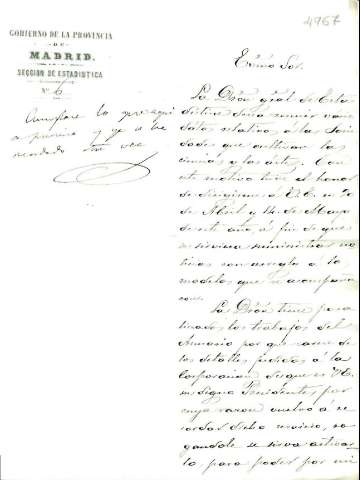 4967
GOBIERNO DE LA PROVINCIA
DE
MADRID.
SECCION DE ESTADISTICA
N.º 6
Cumplase lo que aqui
se previene y ya se ha
mandado otra vez
Excmo Sor.
La Dión gral de Esta
distica desea reunir varios
datos relativos á las Socie
dades que cultivan las
ciencias y las artes. Con
este motivo tuve el honor
de dirigirme á V.E. en 20
de Abril y 14 de Mayo
de este año, á fin de que
se sirviera suministrar no
ticias con arreglo á los
modelos que se acompaña
ron.
La Dión tiene para
lizados los trabajos del
Anuario por que carece de
los detalles pedidos á la
Corporacion de que es V.E.
muy digno Presidente, por
cuya razon vuelvo á re
cordar dicho servicio, ro
gandole se sirva activar
lo para poder por mi